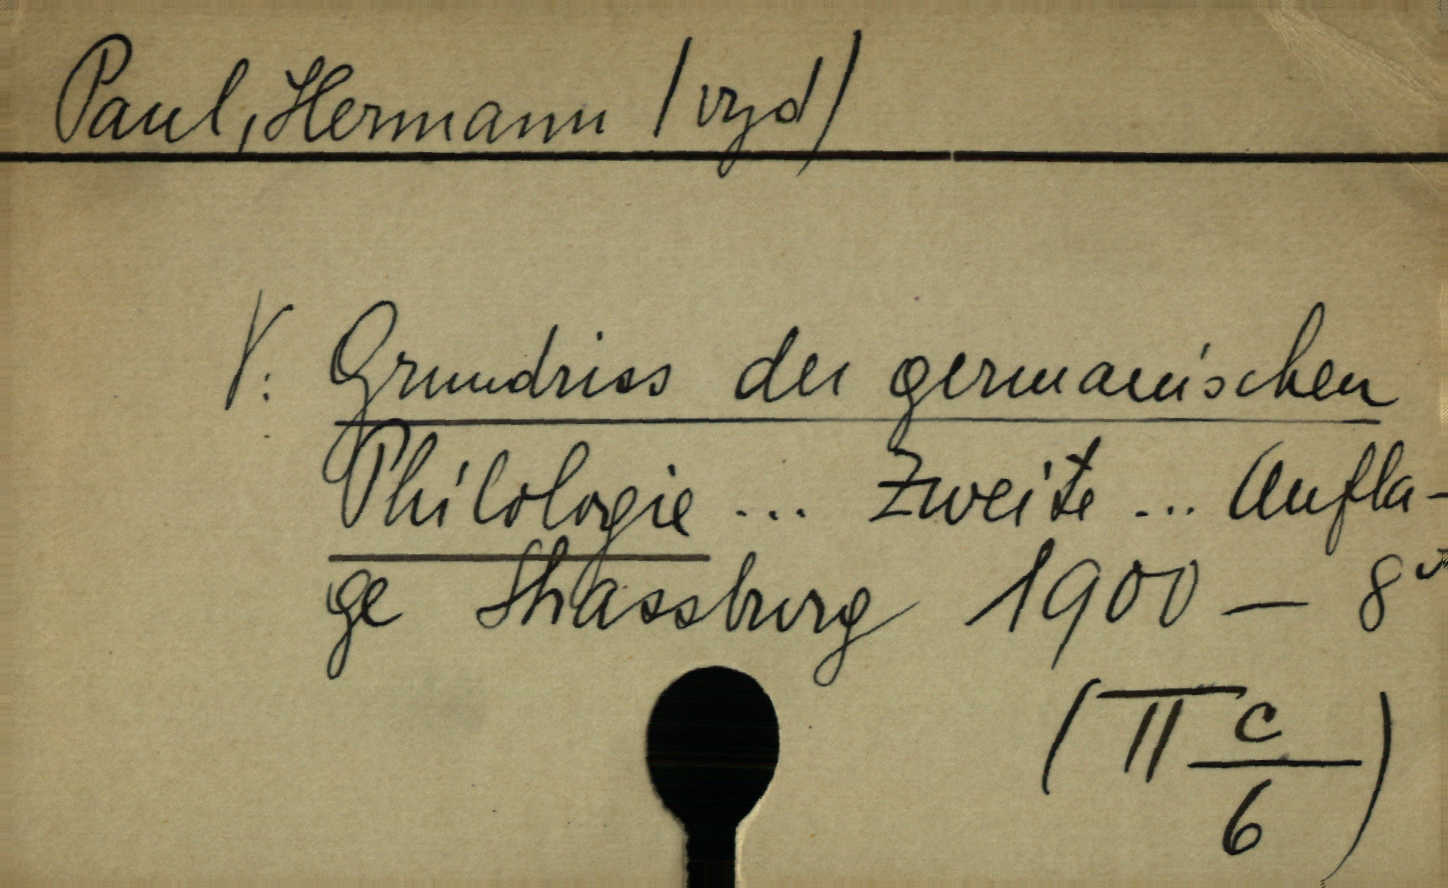 Paul, Hermann /vyd/
V: Grundriss der germanischen
Philologie ... Zweite ... Aufla-
ge Strassburg 1900 — 8º
(II c/6)